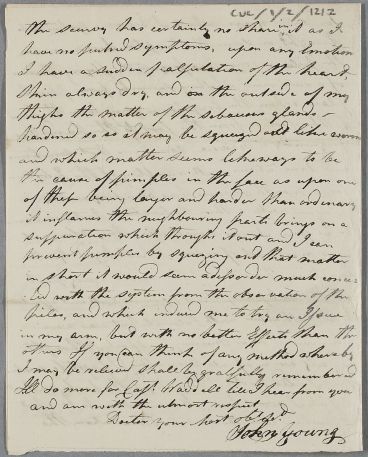 CUL/1/2/1212
The scurvy has certainly no share in it as I
have no putrid symptoms, upon any Emotion
I have a sudden palpitation of the heart
Skin always dry, and on the outside of my
thighs the matter of the sebaceous glands
hardned so as it may be squeezed out like worms
and which matter seems likeways to be
the cause of pimples in the face as upon one
of these being larger and harder than ordinary
it inflames the neighbouring parts brings on a
suppuration which throughs it out and I can
prevent pimples by squeezing out that matter
in short it would seem a disorder much connec
ted with the system from the observation of the
piles, and which induced me to try an Issue
in my arm, but with no better Effects than the
others If you can think of any method whereby
I may be relieved shall be gratefully remembered
Ill do more for Capt. till I hear from you
and am with the utmost respect
Doctor your most obt.
John Young